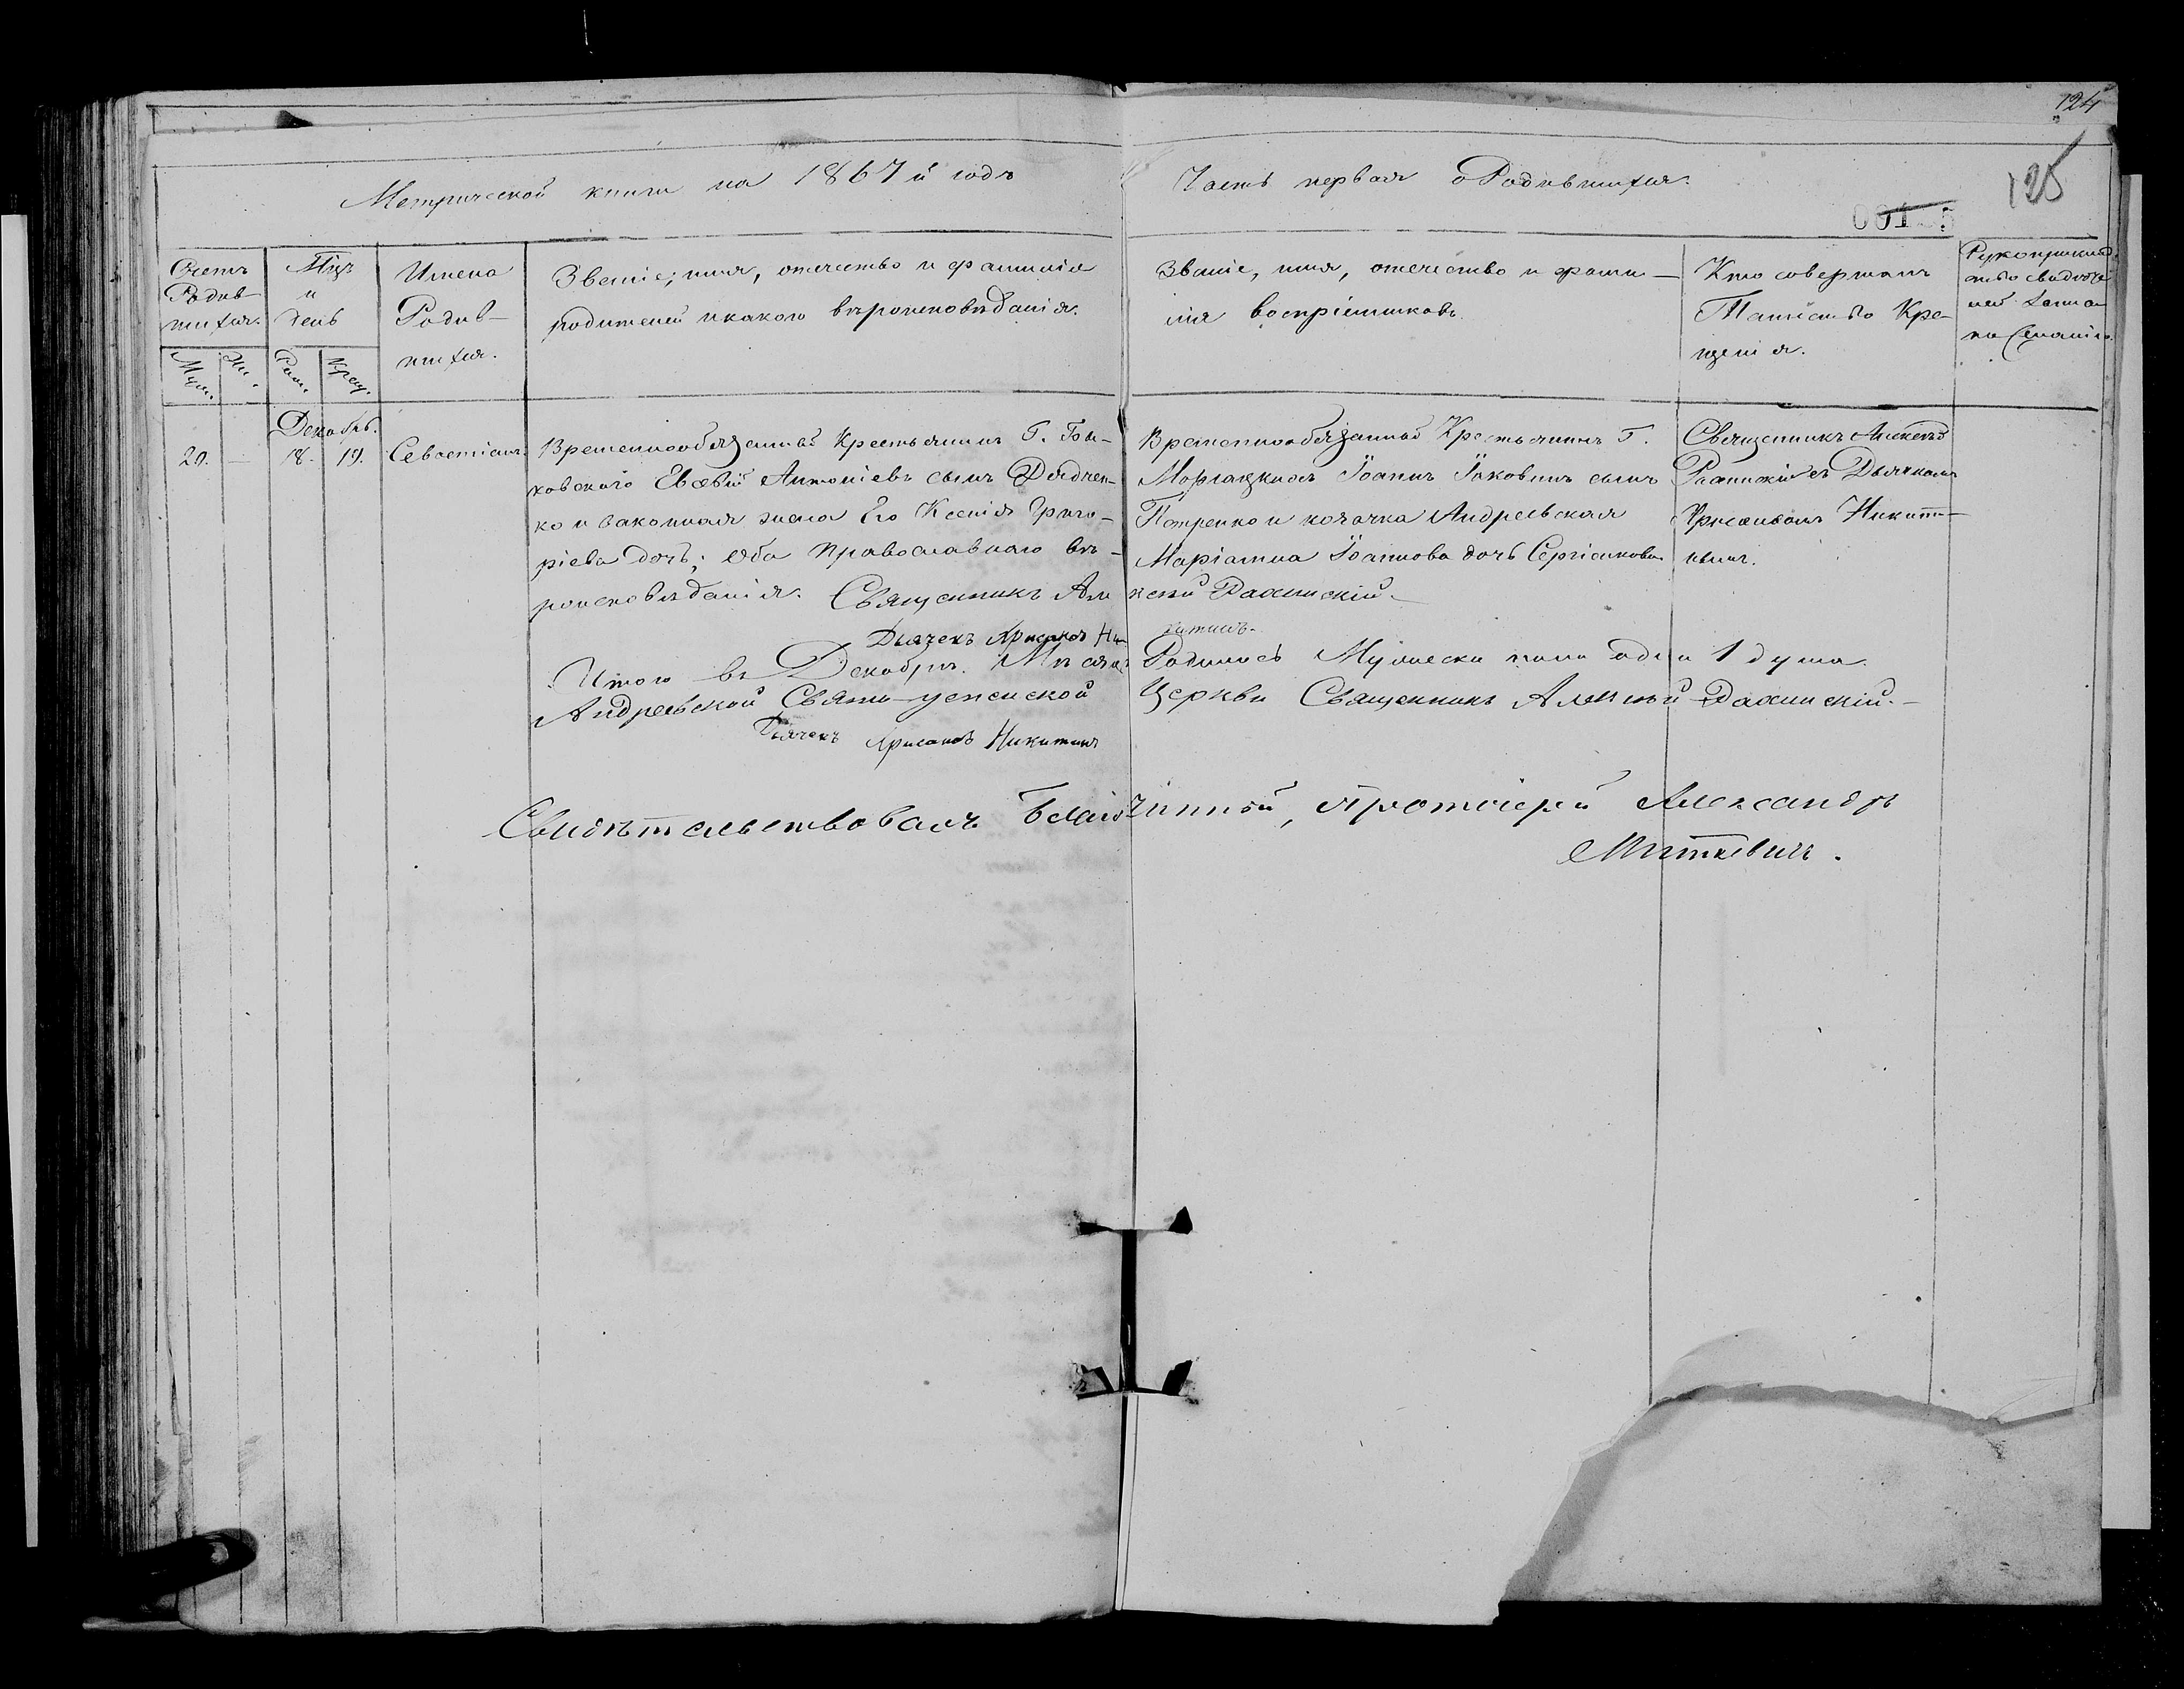 124
125
Метрической книги на 1867й годъ
Часть первая о Родившихся.
Счетъ Родив-
шихся.
Муж.
Жи.
Мцъ
и
день
Рож.
Крещ.
Имена
Родив-
шихся.
Званіе, имя, отечество и фамилія
родителей и какого вѣроисповѣданія.
Званіе, имя, отечество и фами-
лія воспріемниковъ.
Кто совершалъ
Таинство Кре-
щенія.
Рукоприклад
ство свидѣте
лей
по желанію.
Декабрь.
20.
—
18.
19.
Севастіанъ.
Временнообязанный Крестьянинъ Г. Гон-
ковскаго Евсевій Антоніевъ сынъ Дядчен-
ко и законная жена Его Ксенія Григо-
ріева дочь; Оба Православнаго вѣ-
роисповѣданія. Священникъ Але
ксѣй Рахинскій.
Дьячекъ Хрисанфъ Ни-
китинъ.
Временнообязанный Крестьянинъ Г.
Іоаннъ Іаковлевъ сынъ
Петренко и козачка Андреевская
Маріанна Іоаннова дочь Сергіенкова
Священникъ Алексѣй
Рахинскій съ Дьячкомъ
Хрисанфомъ Никити-
нымъ.
Итого въ Декабрѣ Мѣсяцѣ Родилось Мужеска пола одна 1 душа.
Андреевской Свято-успенской Церкви Священникъ Алексѣй Рахинскій.
Дьячекъ Хрисанфъ Никитинъ
Свидѣтельствовалъ Благочинный, Протоіерей Александръ
Миткевичъ.